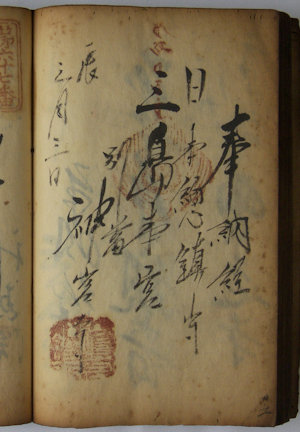 奉納経
日本惣鎮守
三島本宮
別當
神宮寺
辰
三月三日